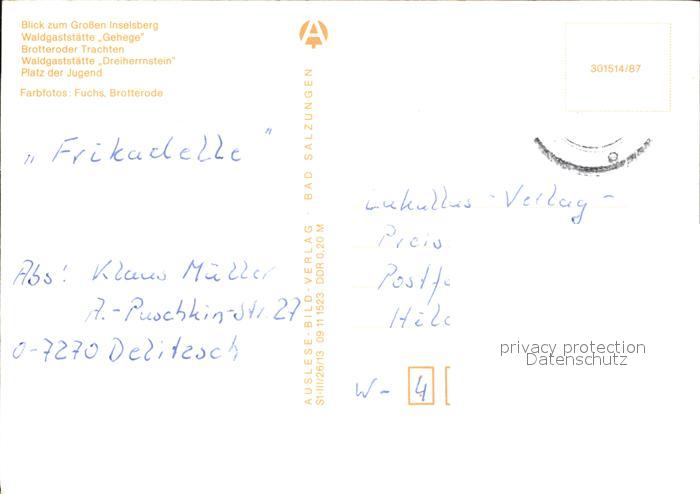 Blick zum Großen Inselsberg
Waldgaststätte „Gehege"
Brotteroder Trachten
Waldgaststätte „Dreiherrnstein"
Platz der Jugend
Farbfotos: Fuchs, Brotterode
„Frikadelle"
Abs: Klaus Müller
A.-Puschkin-Str. 27
O-7270 Delitzsch
AUSLESE-BILD-VERLAG · BAD SALZUNGEN
S1-III/26/13 09 11 1523 DDR 0,20 M
301514/87
Lukullus-Verlag-
Preis
Postf
W- 4
privacy protection
Datenschutz